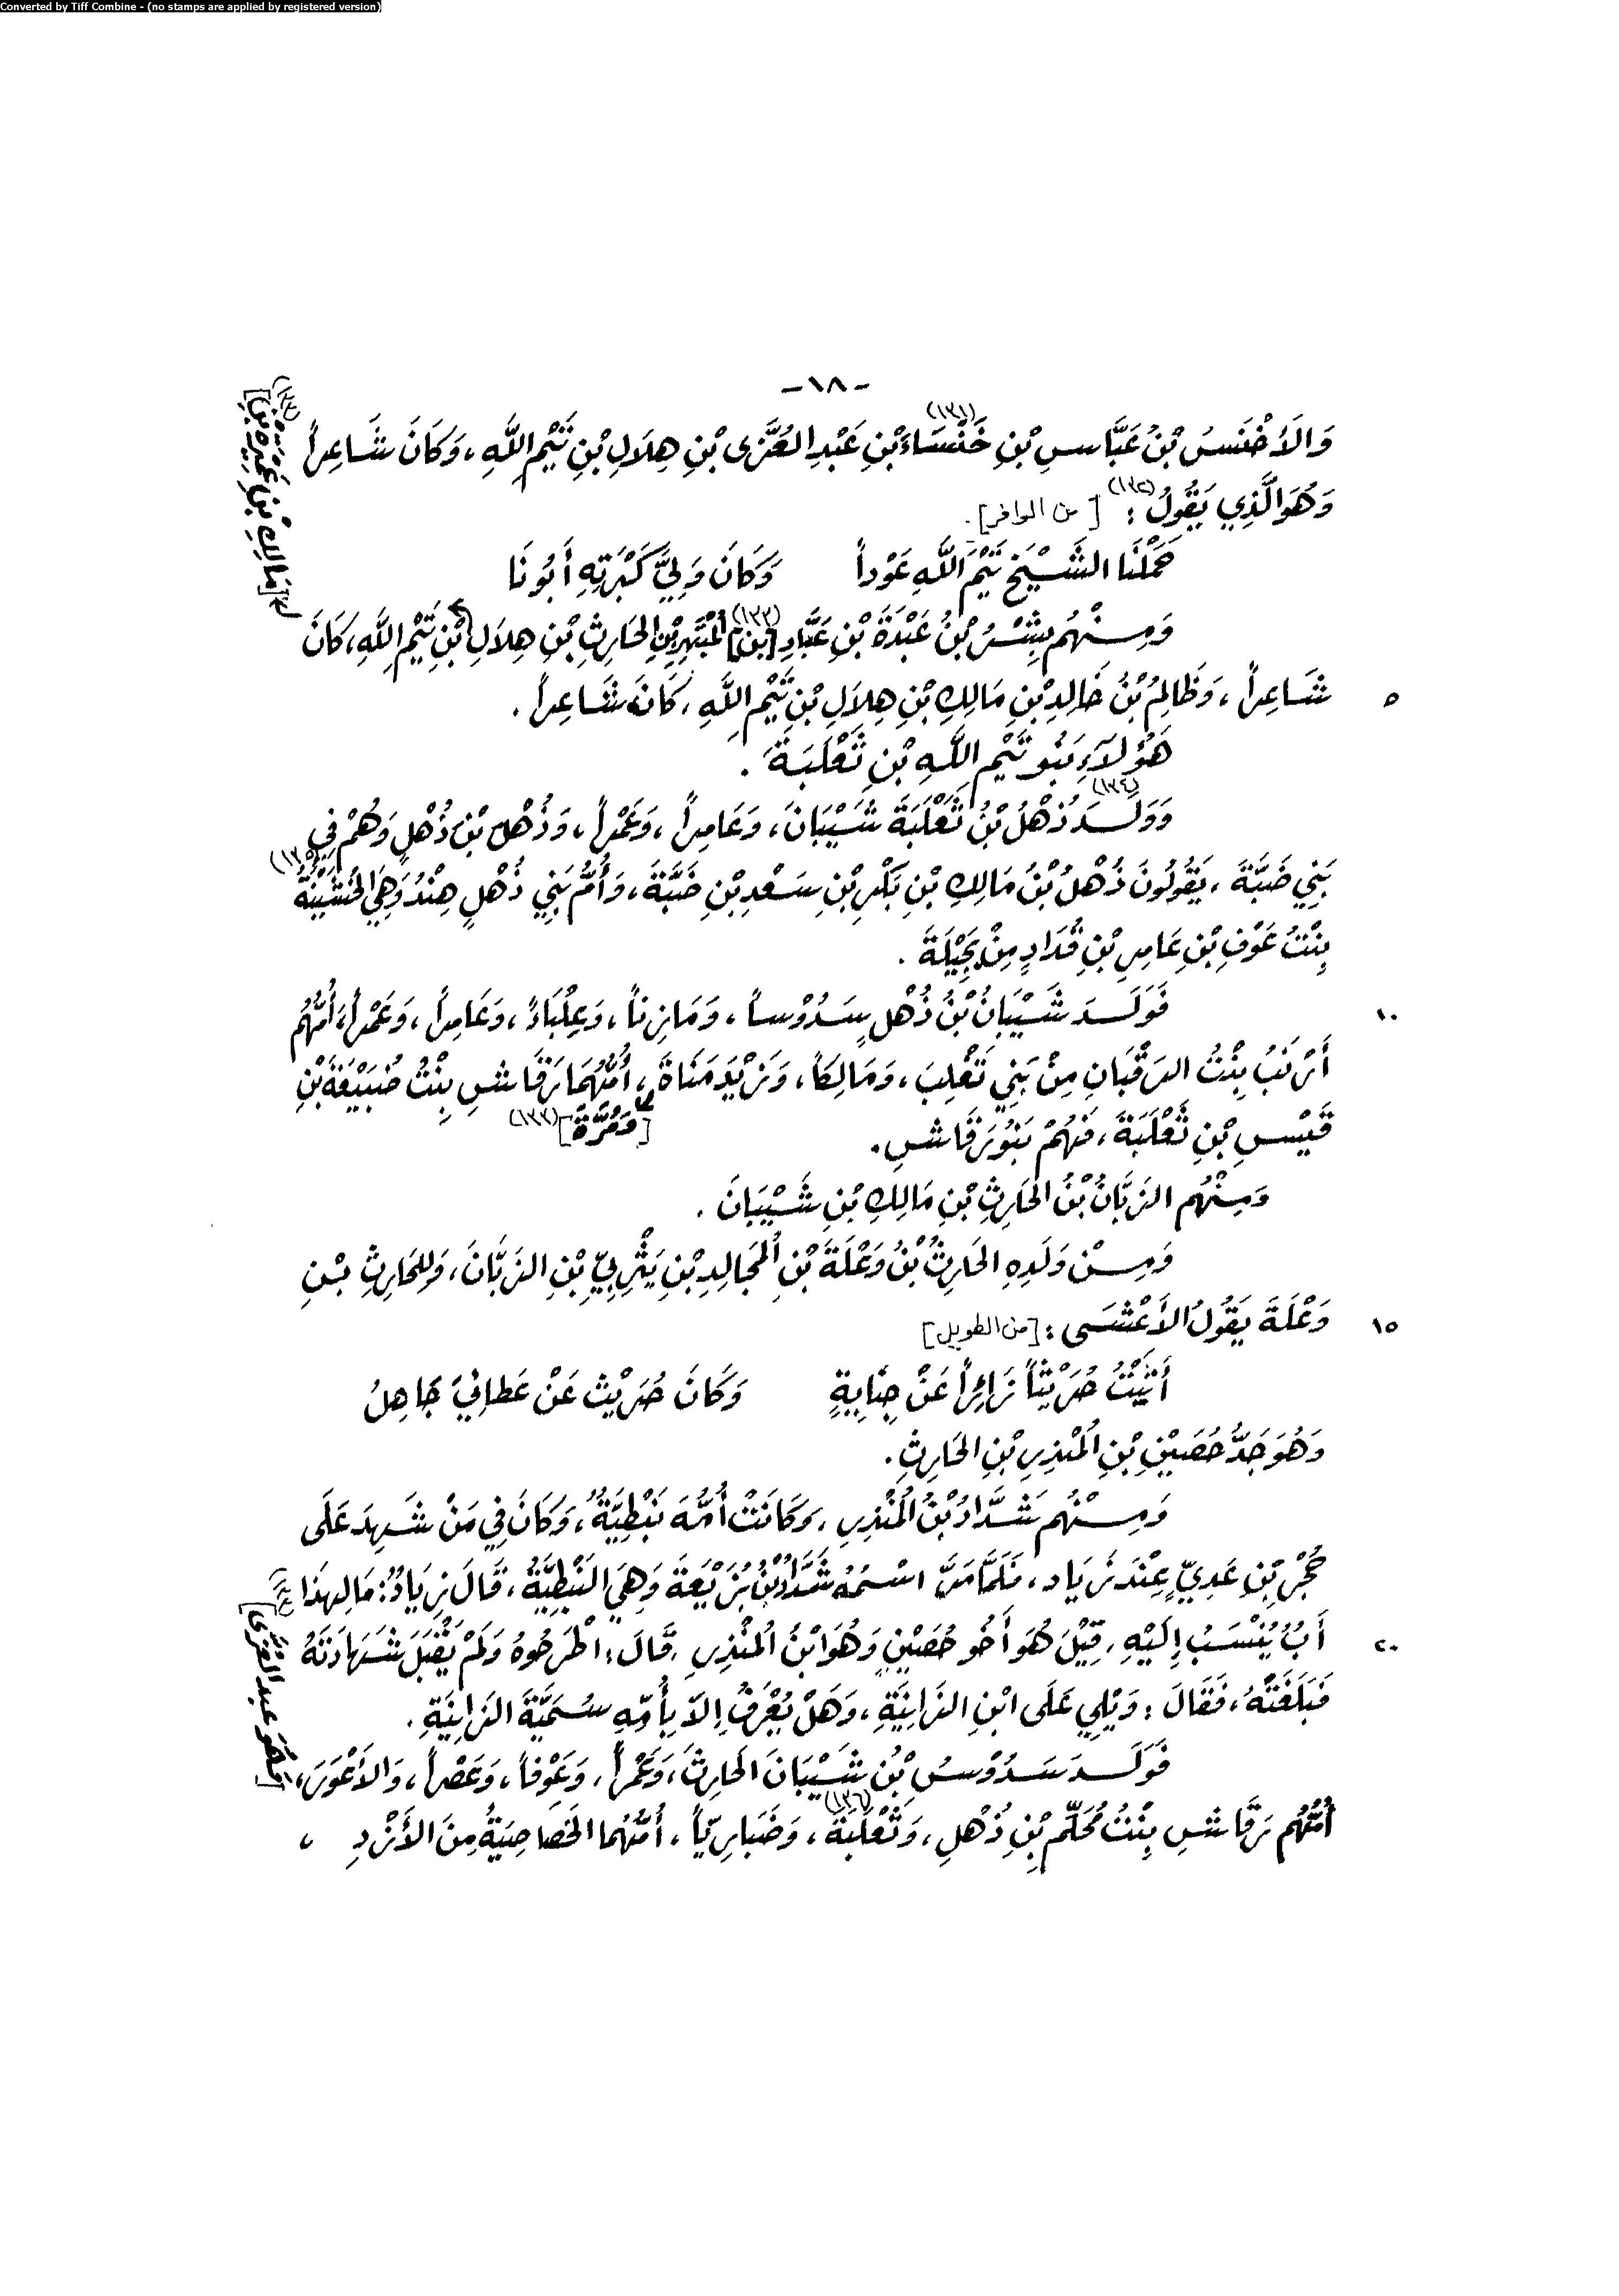 Converted by Tiff Combine - (no stamps are applied by registered version)
-١٨-
وَالأَخْنَسُ بْنُ عَبَّاسِ بْنِ خَنْسَاءَ (١٣١) بْنِ عَبْدِ العُزَّى بْنِ هِلَالِ بْنِ تَيْمِ اللَّهِ ، وَكَانَ شَاعِراً
وَهُوَ الَّذِي يَقُولُ (١٣٢) : [من الوافر]
حَمَلْنَا الشَّيْخَ تَيْمَ اللَّهِ عَوْداً وَكَانَ وَلِيَّ كَبْرَتِهِ أَبُونَا
وَمِنْهُم بِشْرُ بْنُ عَبْدَةَ بْنِ عَبَّادِ [بْنِ] (١٣٣) الحَارِثِ بْنِ هِلَالِ بْنِ تَيْمِ اللَّهِ ، كَانَ
٥ شَاعِراً ، وَظَالِمُ بْنُ خَالِدِ بْنِ مَالِكِ بْنِ هِلَالِ بْنِ تَيْمِ اللَّهِ ، كَانَ شَاعِراً .
هَؤُلَاءِ بَنُو تَيْمِ اللَّهِ بْنِ ثَعْلَبَةَ .
وَوَلَدَ (١٣٤) ذُهْلُ بْنُ ثَعْلَبَةَ شَيْبَانَ ، وَعَامِراً ، وَعَمْراً ، وَذُهْلَ بْنَ ذُهْلٍ وَهُمْ فِي
بَنِي ضَبَّةَ ، يَقُولُونَ ذُهْلُ بْنُ مَالِكِ بْنِ بَكْرِ بْنِ سَعْدِ بْنِ ضَبَّةَ ، وَأُمُّ بَنِي ذُهْلٍ هِنْدُ وَهِيَ
بِنْتُ عَوْفِ بْنِ عَامِرِ بْنِ قُدَادٍ مِنْ بَجِيْلَةَ .
١٠ فَوَلَدَ شَيْبَانُ بْنُ ذُهْلٍ سَدُوْساً ، وَمَازِناً ، وَعِلْبَاءً ، وَعَامِراً ، وَعَمْراً ، أُمُّهُم
أَرْنَبُ بِنْتُ الرَقَبَانِ مِنْ بَنِي تَغْلِبَ ، وَمَالِكاً ، وَزَيْدَ مَنَاةَ ، أُمُّهُمَا رَقَاشِ بِنْتُ ضُبَيْعَةَ بْنِ
قَيْسِ بْنِ ثَعْلَبَةَ ، فَهُمْ بَنُو رَقَاشِ . [وَمُرَّةَ]
وَمِنْهُم الزَبَّانُ بْنُ الحَارِثِ بْنِ مَالِكِ بْنِ شَيْبَانَ .
وَمِنْ وَلَدِهِ الحَارِثُ بْنُ وَعْلَةَ بْنِ المُجَالِدِ بْنِ يَثْرِبِيِّ بْنِ الزَبَّانَ ، وَلِلحَارِثِ بْنِ
١٥ وَعْلَةَ يَقُولُ الأَعْشَى : [من الطويل]
أَتَيْتُ حُرَيْثاً زَائِراً عَنْ جِنَايَةٍ وَكَانَ حُرَيْثُ عَنْ عَطَائِيَ جَاهِلُ
وَهُوَ جَدُّ حُصَيْنِ بْنِ المُنْذِرِ بْنِ الحَارِثِ .
وَمِنْهُم شَدَّادُ بْنُ المُنْذِرِ ، وَكَانَتْ أُمُّهُ نَبْطِيَّةٌ ، وَكَانَ فِي مَنْ شَهِدَ عَلَى
حُجْرِ بْنِ عَدِيٍّ عِنْدَ زِيَاد ، فَلَمَّا مَرَّ اسْمُهُ شَدَّادُ بْنُ بُزَيْعَةَ وَهِيَ النَبْطِيَّةُ ، قَالَ زِيَادٌ : مَا لِهَذَا
٢٠ أَبٌ يُنْسَبُ إِلَيْهِ ، قِيْلَ هُوَ أَخُو حُصَيْنٍ وَهُوَ ابْنُ المُنْذِرِ ، قَالَ : اطْرَحُوهُ وَلَمْ يَقْبَلْ شَهَادَتَهُ
فَبَلَغَتْهُ ، فَقَالَ : وَيْلِي عَلَى ابْنِ الزَانِيَةِ ، وَهَلْ يُعْرَفُ إِلاَّ بِأُمِّهِ سُمَيَّةَ الزَانِيَةِ .
فَوَلَدَ سَدُوْسُ بْنُ شَيْبَانَ الحَارِثَ ، وَعَمْراً ، وَعَوْفاً ، وَعَصْراً ، وَالأَعْوَرَ ،
أُمُّهُم رَقَاشِ بِنْتُ مُحَلِّمِ بْنِ ذُهْلٍ ، وَثَعْلَبَةَ (١٣٦) ، وَضَبَارِيّاً ، أُمُّهُما الخَصَاصِيَةُ مِنَ الأَزْدِ ،